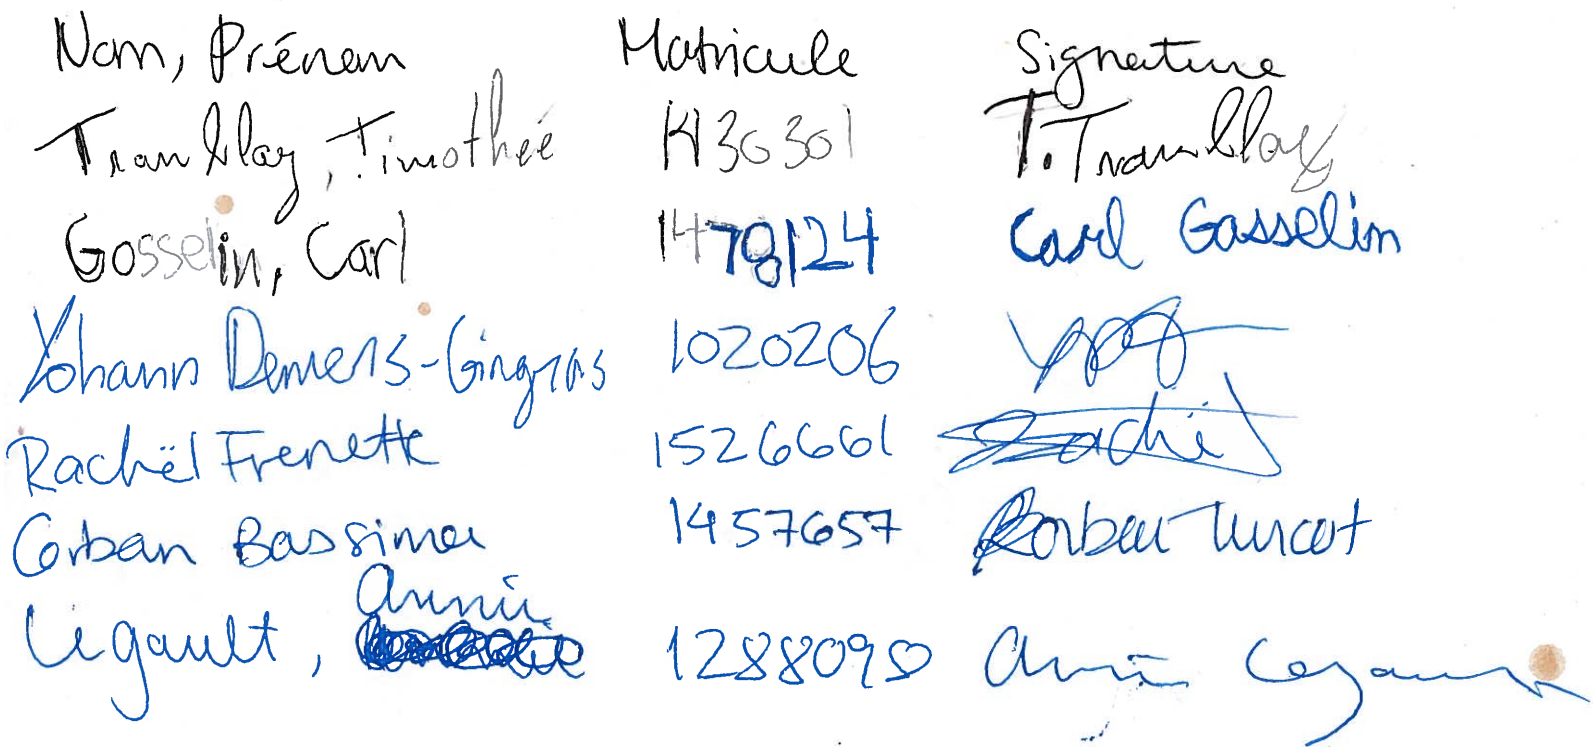 Nom, Prénom Matricule Signature
Tremblay, Timothée 1430301 T. Tremblay
Gosselin, Carl 1478124 Carl Gosselin
Yohann Demers-Gingras 1020206
Rachël Frenette 1526661 Rachël
Corban Bassima 1457657 Corban Turcot
Legault, Annie 1288090 Annie Legault